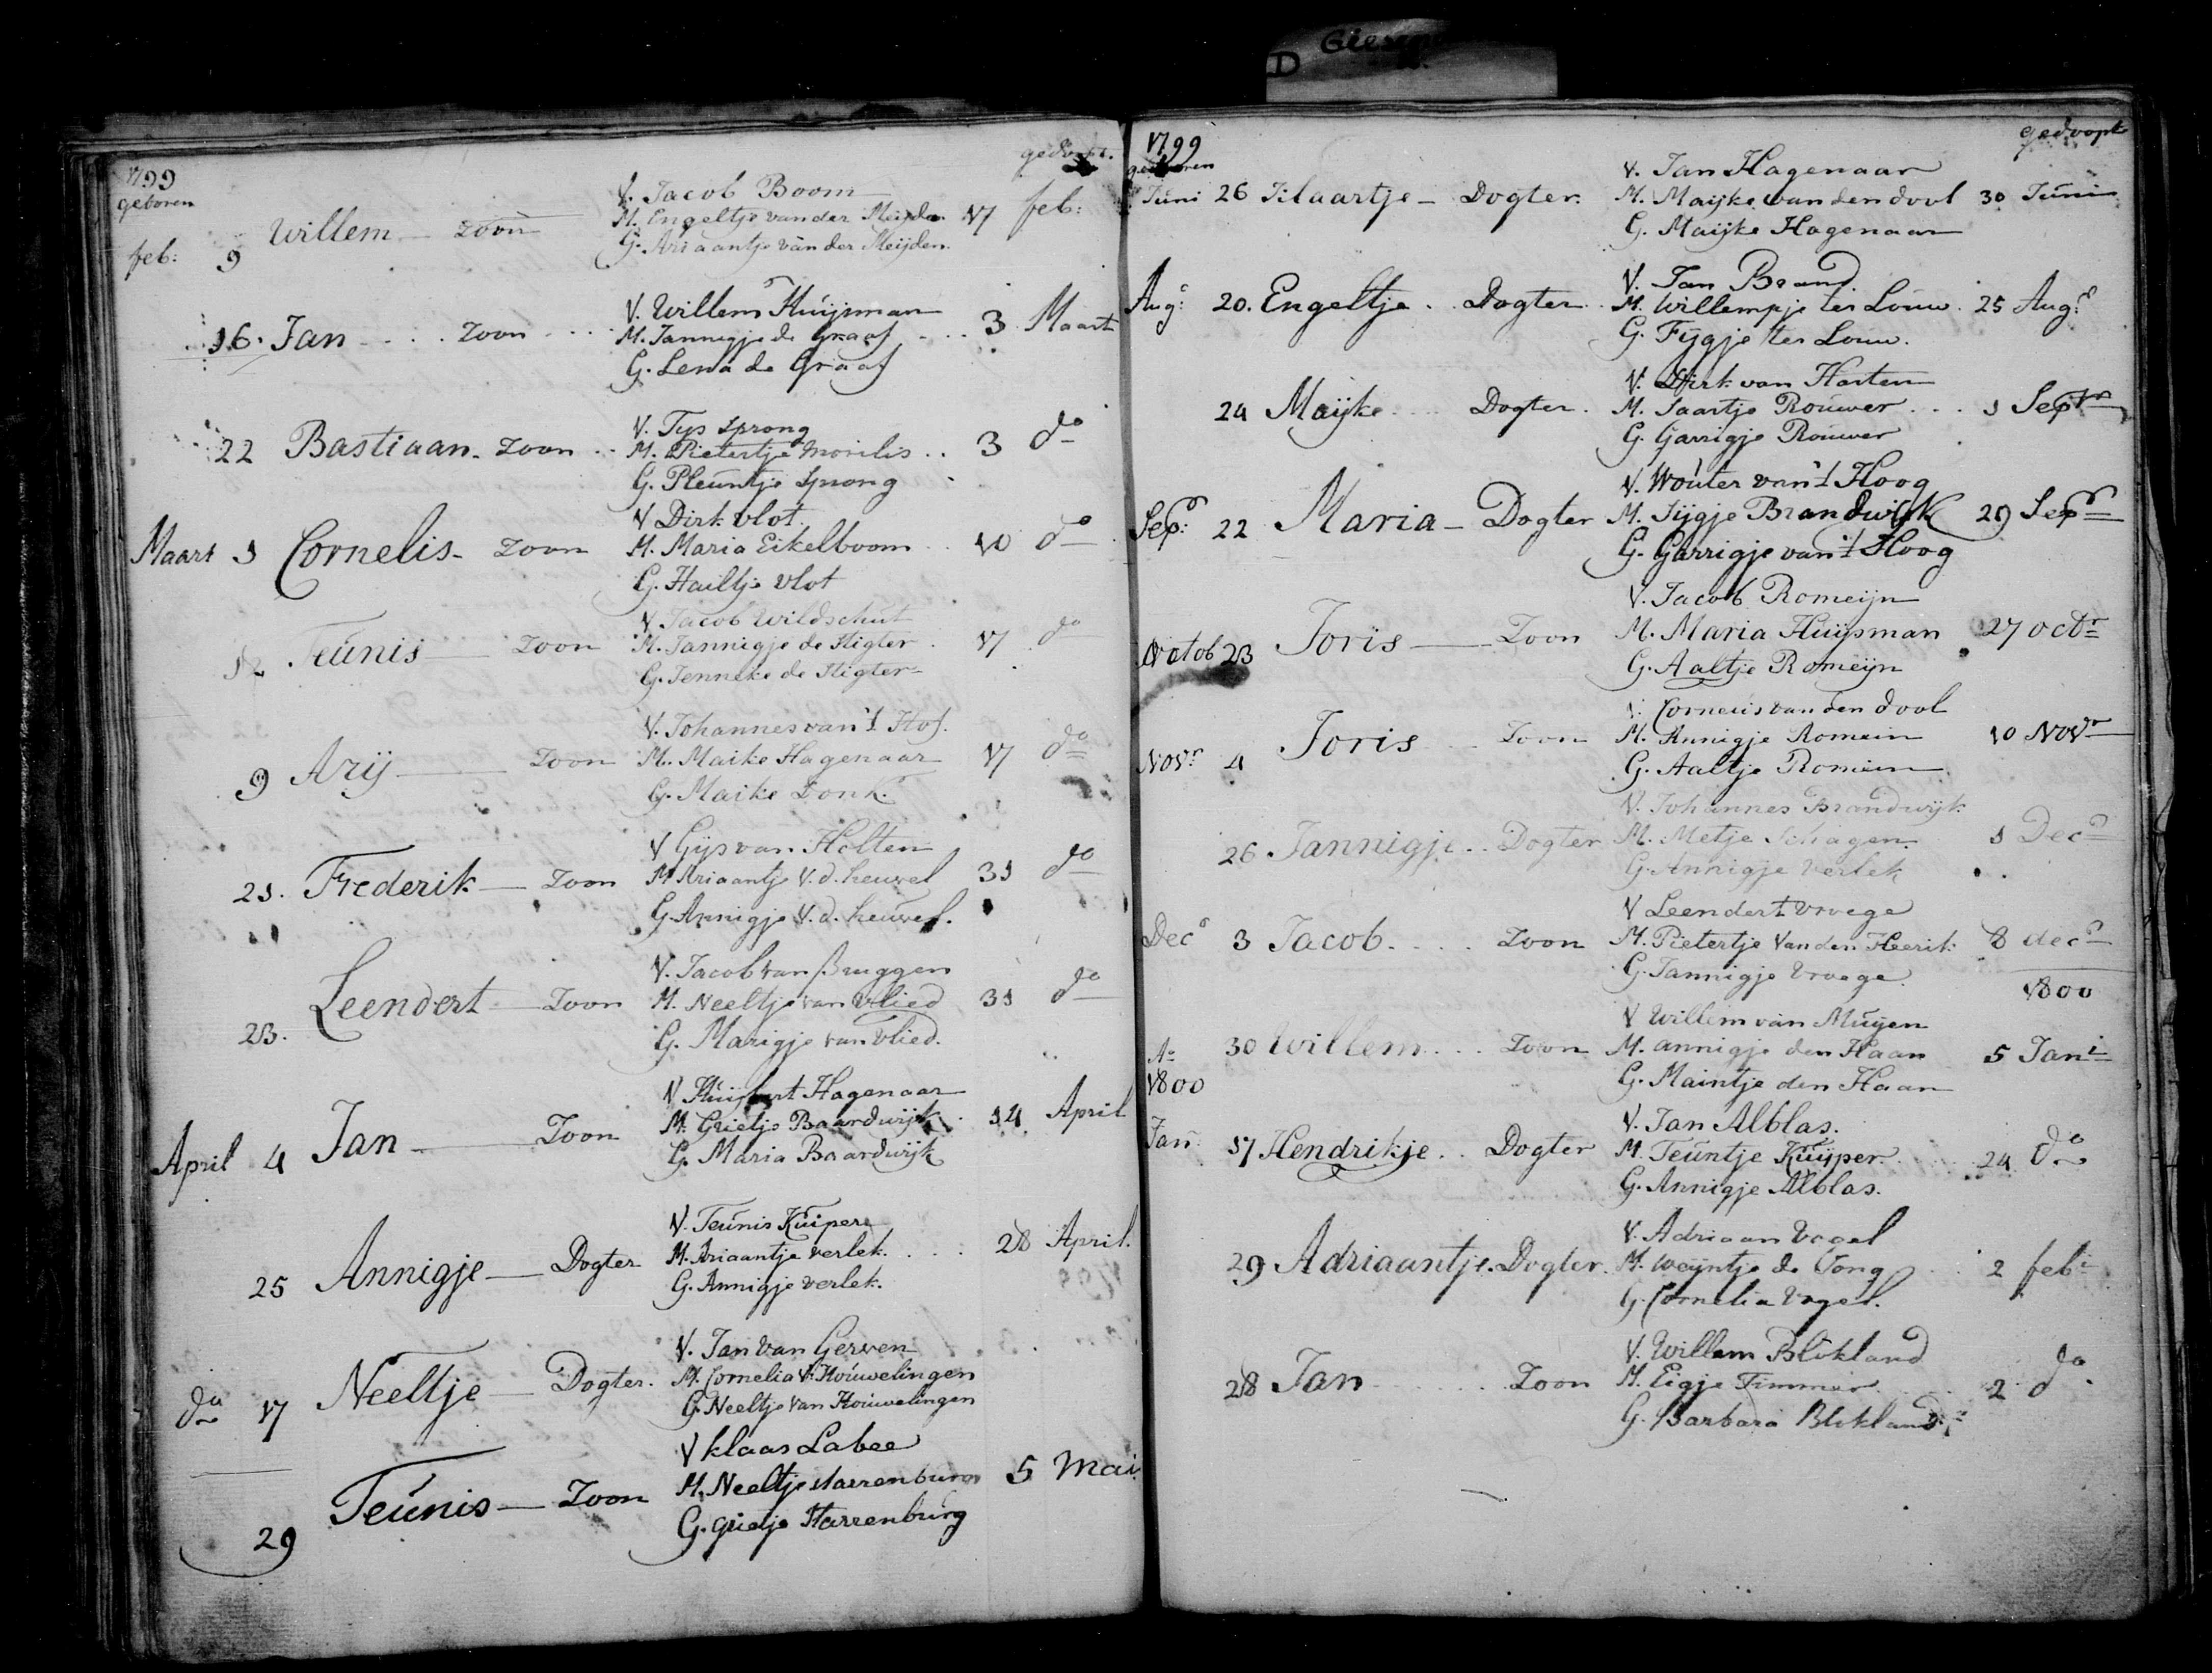 D Giesen
1799
geboren
gedoopt.
V. Jacob Boom
feb: 9 Willem - zoon M. Engeltje van der Meijden 17 feb:
G. Ariaantje van der Meijden.
V. Willem Huijsman
16. Jan .... zoon .... M. Jannigje de Graaf .... 3 Maart
G. Lena de Graaf
V. Tys Sprong
22 Bastiaan - zoon .. M. Pietertje Morilis .. 3 do
G. Pleuntje Sprong
V Dirk Vlot.
Maart 1 Cornelis - zoon M. Maria Eikelboom .. 10 do
G. Hailtje Vlot
V. Jacob Wildschut
12 Teúnis - zoon M. Jannigje de Higter . 17 do
G. Jenneke de Higter
V. Johannes van 't Hof.
9 Arij - Zoon M. Maike Hagenaar 17 do
G. Maike Donk.
V Gijs van Holten
21. Frederik - Zoon M Ariaantje V. d. heuvel 31 do
G. Annigje V. d. heuvel.
V. Jacob van Bruggen
23. Leendert - Zoon M. Neeltje van Vlied 31 do
G. Marigje van Vlied.
V Huijbert Hagenaar
April 4 Jan - Zoon M. Grietje Baardwijk . 14 April
G. Maria Baardwijk
V. Teunis Kuiper
25 Annigje - Dogter M. Ariaantje Verlek .... 28 April.
G. Annigje Verlek.
V. Jan van Gerven
do 17 Neeltje - Dogter. M. Cornelia V. Houwelingen
G. Neeltje van Houwelingen
V Klaas Labee
29 Teúnis - Zoon M. Neeltje Harrenburg 5 Mai
G. Grietje Harrenburg
1799
geboren
gedoopt
V. Jan Hagenaar
Juni 26 Klaartje - Dogter. M. Maijke van den dool 30 Juni
G. Maijke Hagenaar
V. Jan Brand.
Aug: 20. Engeltje . Dogter . M. Willempje ter Louw . 25 Aug:
G. Fygje ter Louw.
V. Dirk van Harten
24 Maijke .... Dogter . M. Saartje Rouwer ... 1 Septr
G. Garrigje Rouwer
V. Wouter van 't Hoog
Sep: 22 Maria - Dogter M. Sijgje Brandwijk 29 Sepr
G. Garrigje van 't Hoog
V. Jacob Romeijn
Octob 23 Joris - Zoon M. Maria Huijsman 27 octr
G. Aaltje Romeijn
V. Cornelis van den dool
Novr 4 Joris .. Zoon M. Annigje Romein 10 Novr
G. Aaltje Romein
V. Johannes Brandwijk
26 Jannigje .. Dogter M. Metje Schagen. 1 Decr
G. Annigje Verlek
V Leendert Vroege
Decr 3 Jacob .... Zoon M. Pietertje Van den Heerik 8 decr
G. Jannigje Vroege.
1800
V Willem van Muijen
30 Willem ... Zoon M. Annigje den Haan 5 Jani
G. Maintje den Haan
Ao
1800
V. Jan Alblas.
Jan: 17 Hendrikje .. Dogter M. Teuntje Kuijper ..... 24 do
G. Annigje Alblas.
V. Adriaan Vogel
29 Adriaantje. Dogter. M. Weijntje de Jong 2 febr
G. Cornelia Vogel.
V. Willem Blokland
28 Jan ..... Zoon M. Eigje Timmer .... 2 do
G. Barbara Blokland.